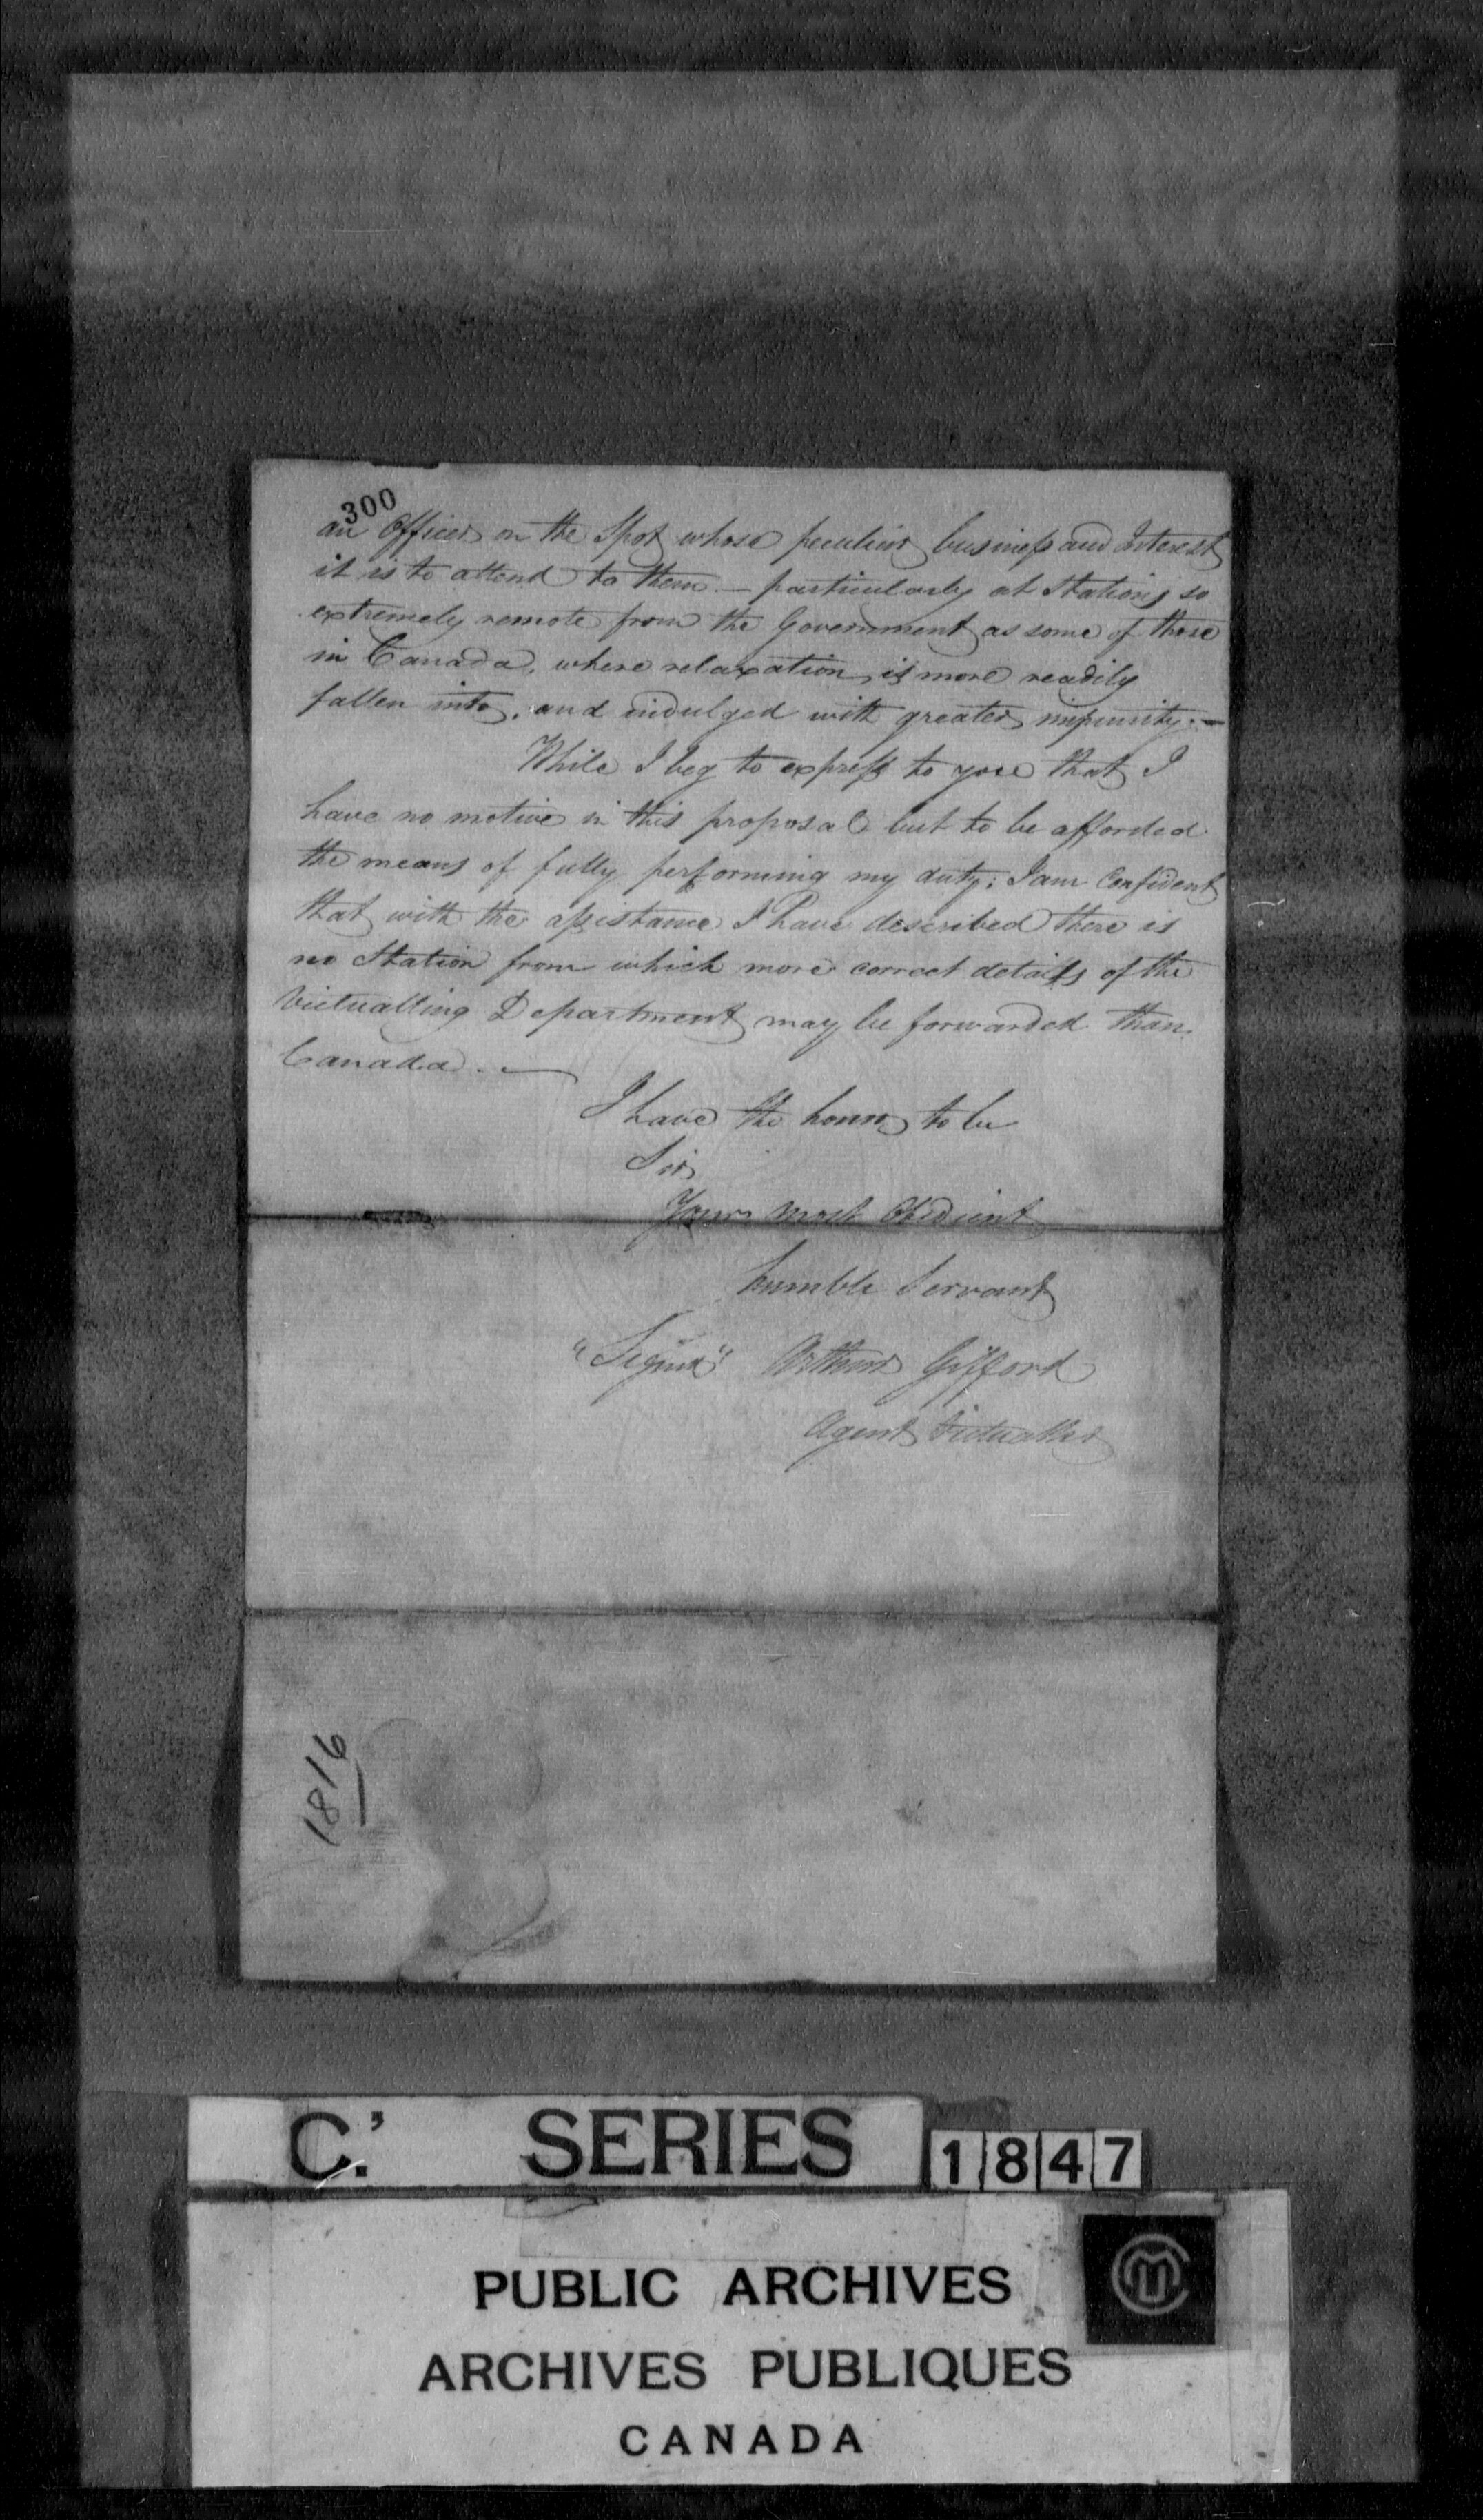 300
an Officer on the Spot whose peculiar business and Interest
it is to attend to them. — particularly at Stations so
extremely remote from the Government as some of those
in Canada, where relaxation is more readily
fallen into, and indulged with greater impunity. —
While I beg to express to you that I
have no motive in this proposal but to be afforded
the means of fully performing my duty; I am Confident
that with the assistance I have described there is
no Station from which more correct details of the
Victualling Department may be forwarded than
Canada. —
I have the honor to be
Sir
Your most Obedient
humble Servant
"Signed" Arthur Gifford
Agent Victualler
1816
C. SERIES 1847
PUBLIC ARCHIVES
ARCHIVES PUBLIQUES
CANADA